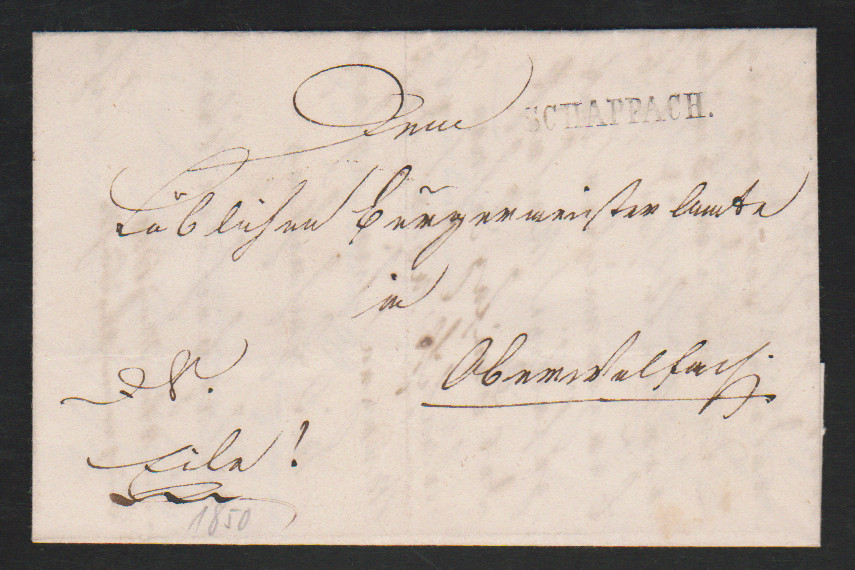 Dem
SCHAPPACH.
Löblichen Bürgermeisteramte
in
Oberwolfach.
D. S.
Eile!
1850